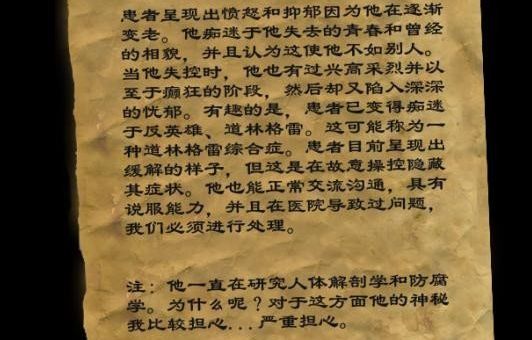 患者呈现出愤怒和抑郁因为他在逐渐
变老。他痴迷于他失去的青春和曾经
的相貌，并且认为这使他不如别人。
当他失控时，他也有过兴高采烈并以
至于癫狂的阶段，然后却又陷入深深
的忧郁。有趣的是，患者已变得痴迷
于反英雄、道林格雷。这可能称为一
种道林格雷综合症。患者目前呈现出
缓解的样子，但这是在故意操控隐藏
其症状。他也能正常交流沟通，具有
说服能力，并且在医院导致过问题，
我们必须进行处理。
注：他一直在研究人体解剖学和防腐
学。为什么呢？对于这方面他的神秘
我比较担心...严重担心。